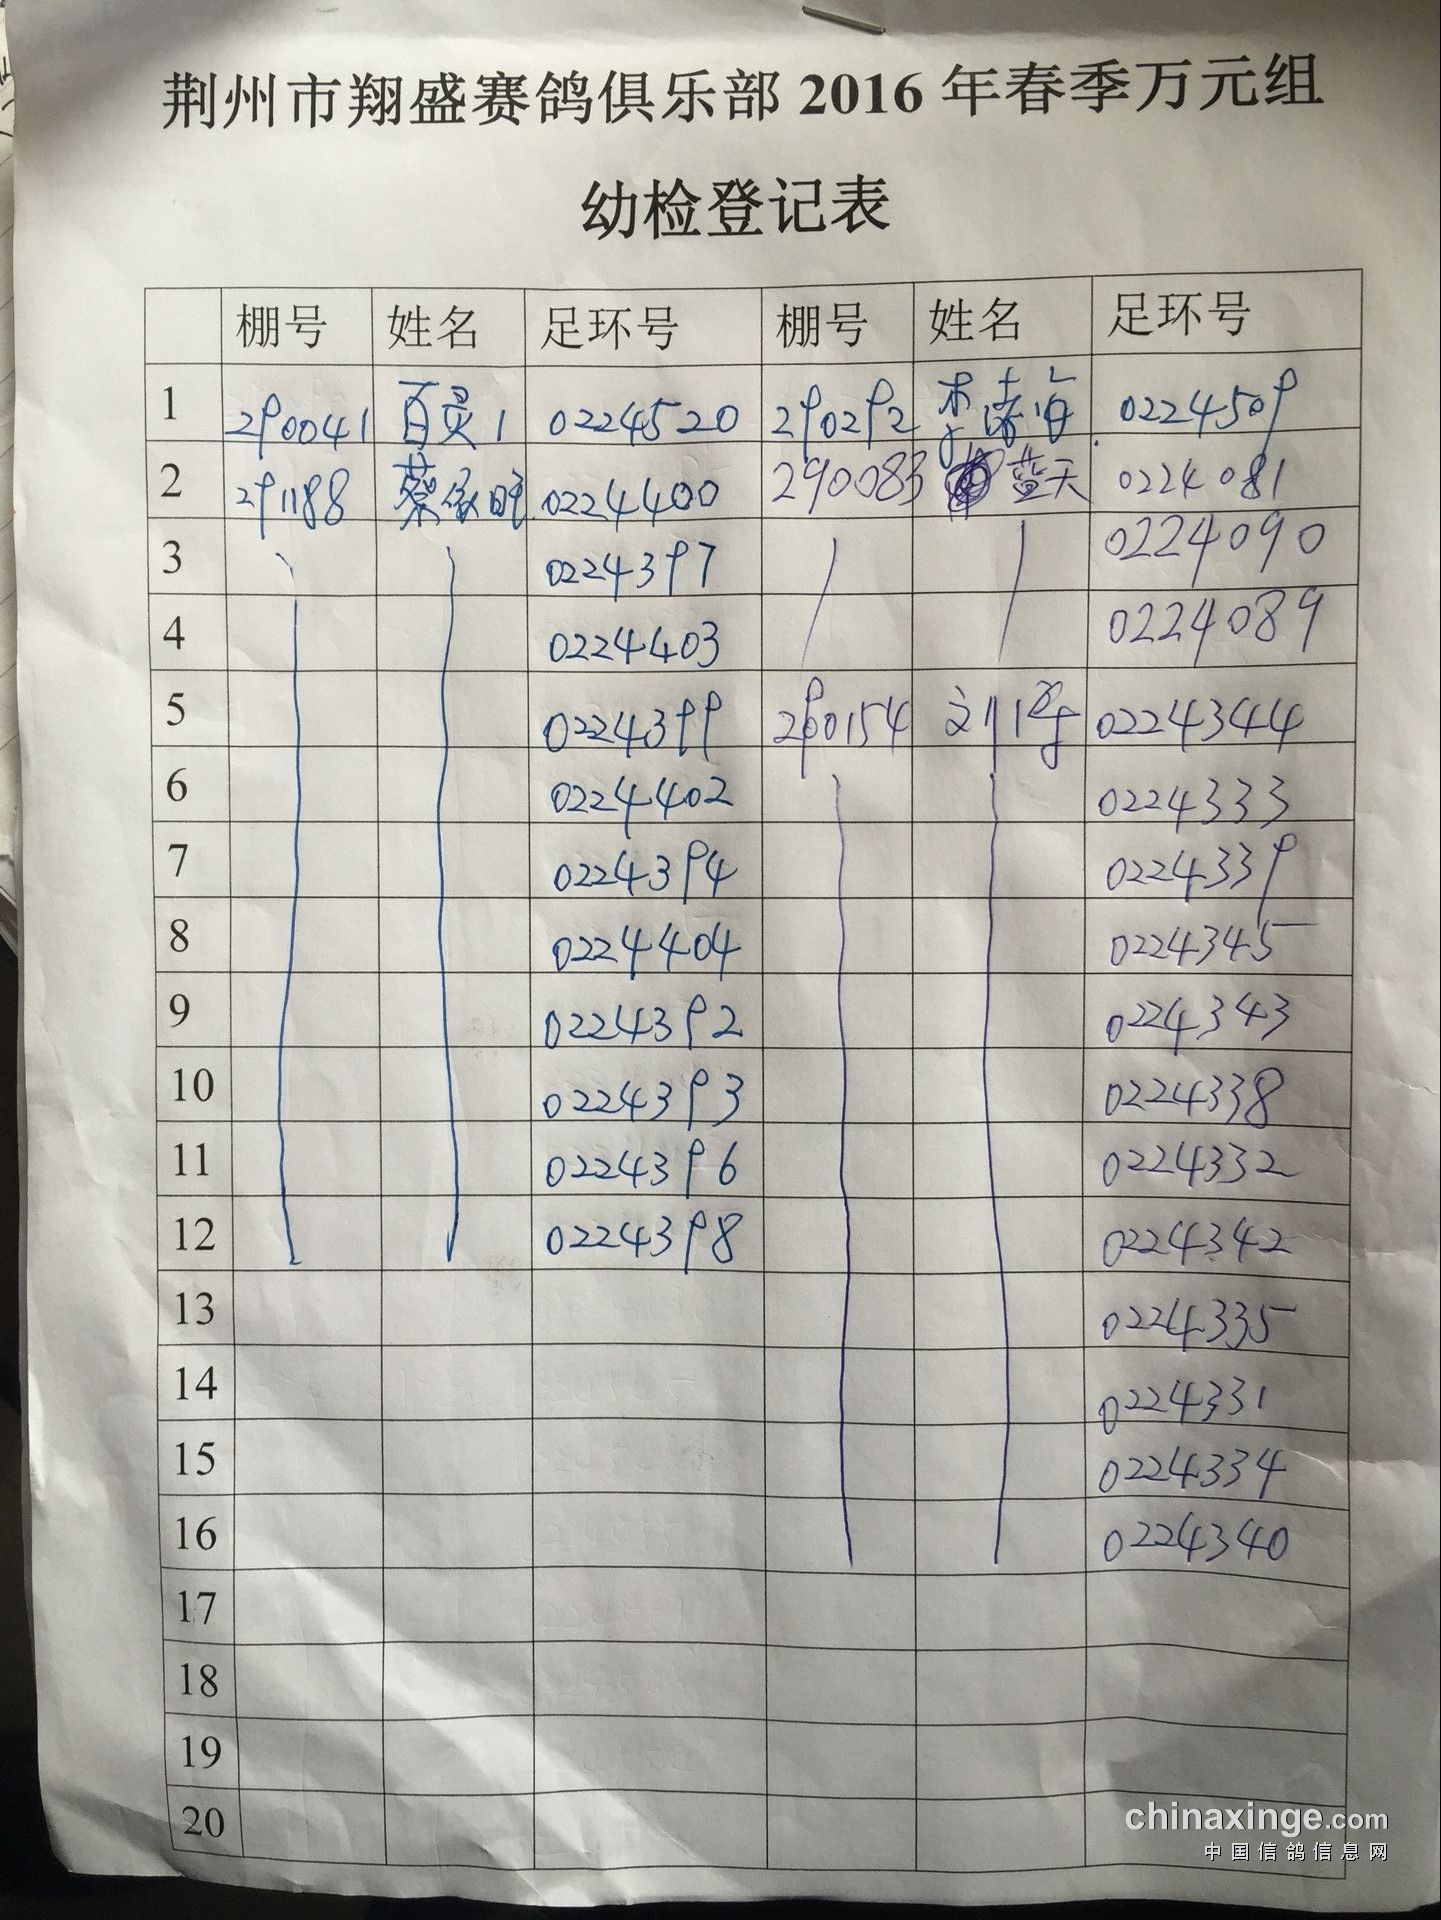 荆州市翔盛赛鸽俱乐部 2016 年春季万元组
幼检登记表
棚号 姓名 足环号 棚号 姓名 足环号
1 290041 百灵1 0224520 290292 李 海 0224509
2 291188 蔡 旺 0224400 290083 蓝天 0224081
3 0224397 0224090
4 0224403 0224089
5 0224399 290154 刘 0224344
6 0224402 0224333
7 0224394 0224339
8 0224404 0224345
9 0224392 0224343
10 0224393 0224338
11 0224396 0224332
12 0224398 0224342
13 0224335
14 0224331
15 0224334
16 0224340
17
18
19
20
chinaxinge.com
中国信鸽信息网